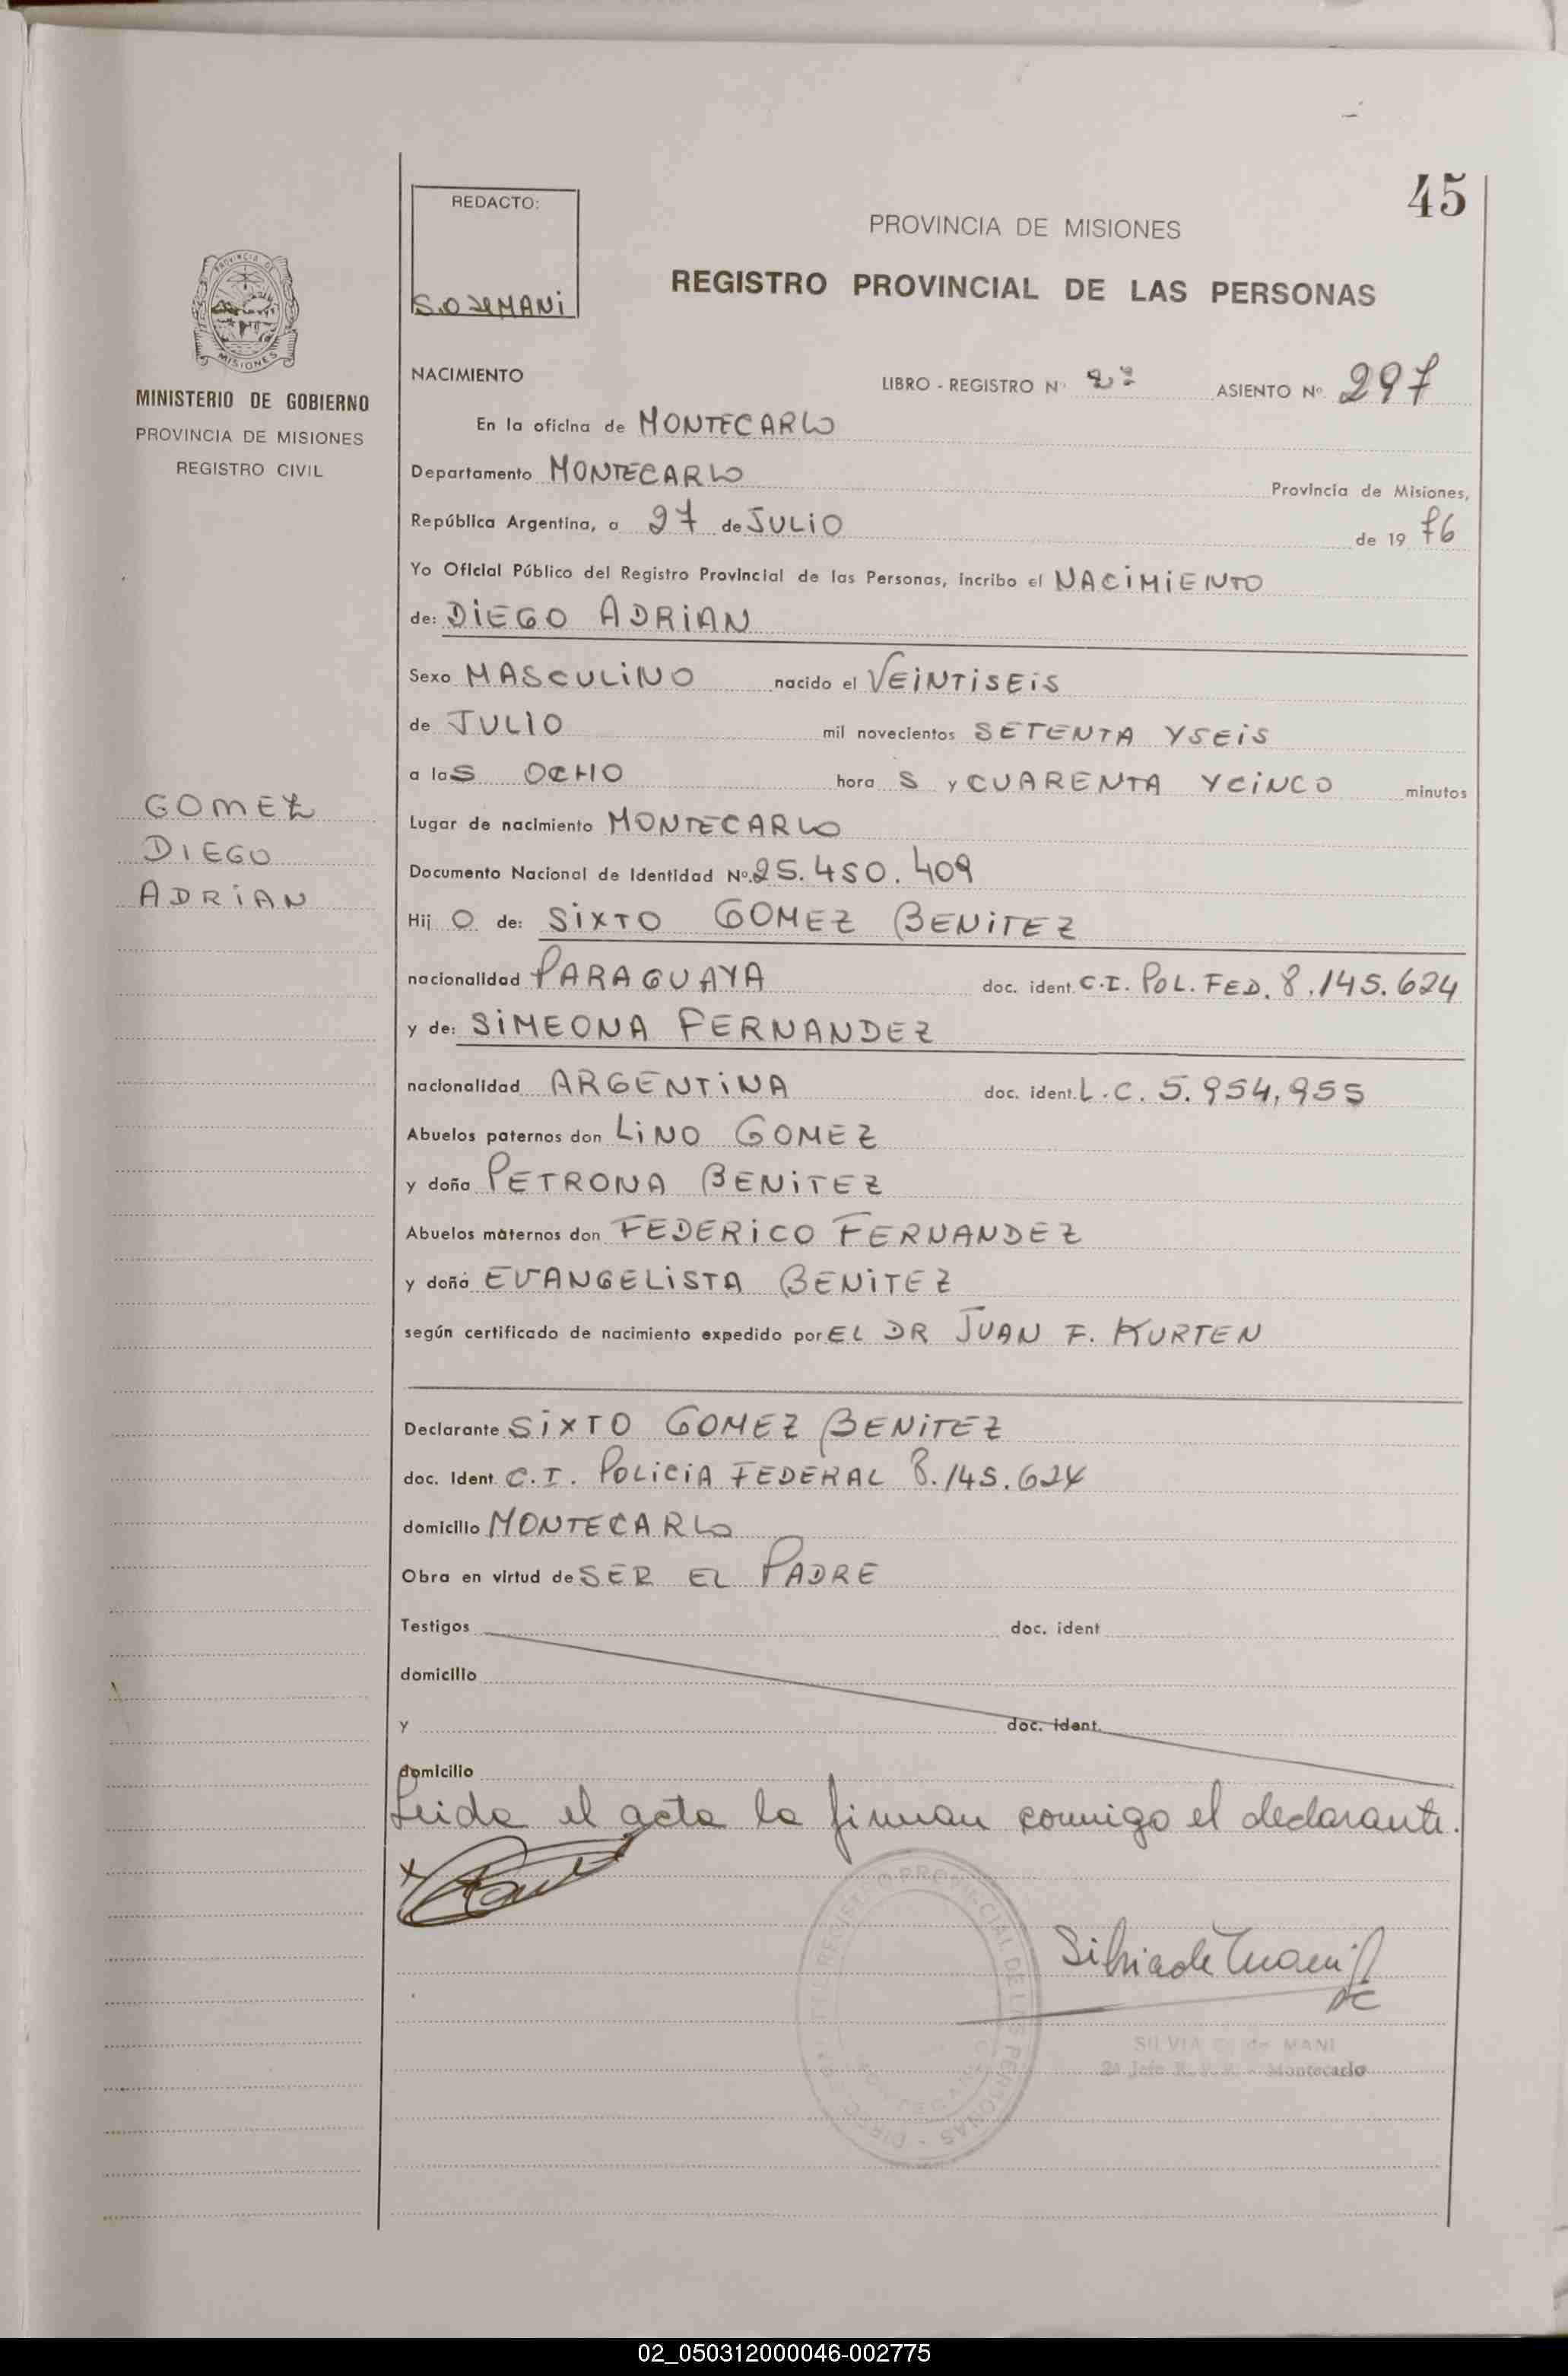 45
REDACTO:
S.O de MANI
PROVINCIA DE MISIONES
REGISTRO PROVINCIAL DE LAS PERSONAS
PROVINCIA DE
MISIONES
MINISTERIO DE GOBIERNO
PROVINCIA DE MISIONES
REGISTRO CIVIL
NACIMIENTO LIBRO - REGISTRO Nº 2º ASIENTO Nº 297
En la oficina de MONTECARLO
Departamento MONTECARLO Provincia de Misiones,
República Argentina, a 27 de JULIO de 19 76
Yo Oficial Público del Registro Provincial de las Personas, incribo el NACIMIENTO
de: DIEGO ADRIAN
Sexo MASCULINO nacido el VEINTISEIS
de JULIO mil novecientos SETENTA Y SEIS
a las OCHO hora S y CUARENTA Y CINCO minutos
GOMEZ
DIEGO
ADRIAN
Lugar de nacimiento MONTECARLO
Documento Nacional de Identidad Nº 25.450.409
Hij O de: SIXTO GOMEZ BENITEZ
nacionalidad PARAGUAYA doc. ident. C.I. POL. FED. 8.145.624
y de: SIMEONA FERNANDEZ
nacionalidad ARGENTINA doc. ident. L.C. 5.954.955
Abuelos paternos don LINO GOMEZ
y doña PETRONA BENITEZ
Abuelos maternos don FEDERICO FERNANDEZ
y doña EVANGELISTA BENITEZ
según certificado de nacimiento expedido por EL DR JUAN F. KURTEN
Declarante SIXTO GOMEZ BENITEZ
doc. Ident. C.I. POLICIA FEDERAL 8.145.624
domicilio MONTECARLO
Obra en virtud de SER EL PADRE
Testigos doc. ident
domicilio
y doc. ident.
domicilio
Leida el acta la firman conmigo el declarante.
REGISTRO PROVINCIAL DE LAS PERSONAS
SILVIA de MANI
2ª Jefe Montecarlo
02_050312000046-002775